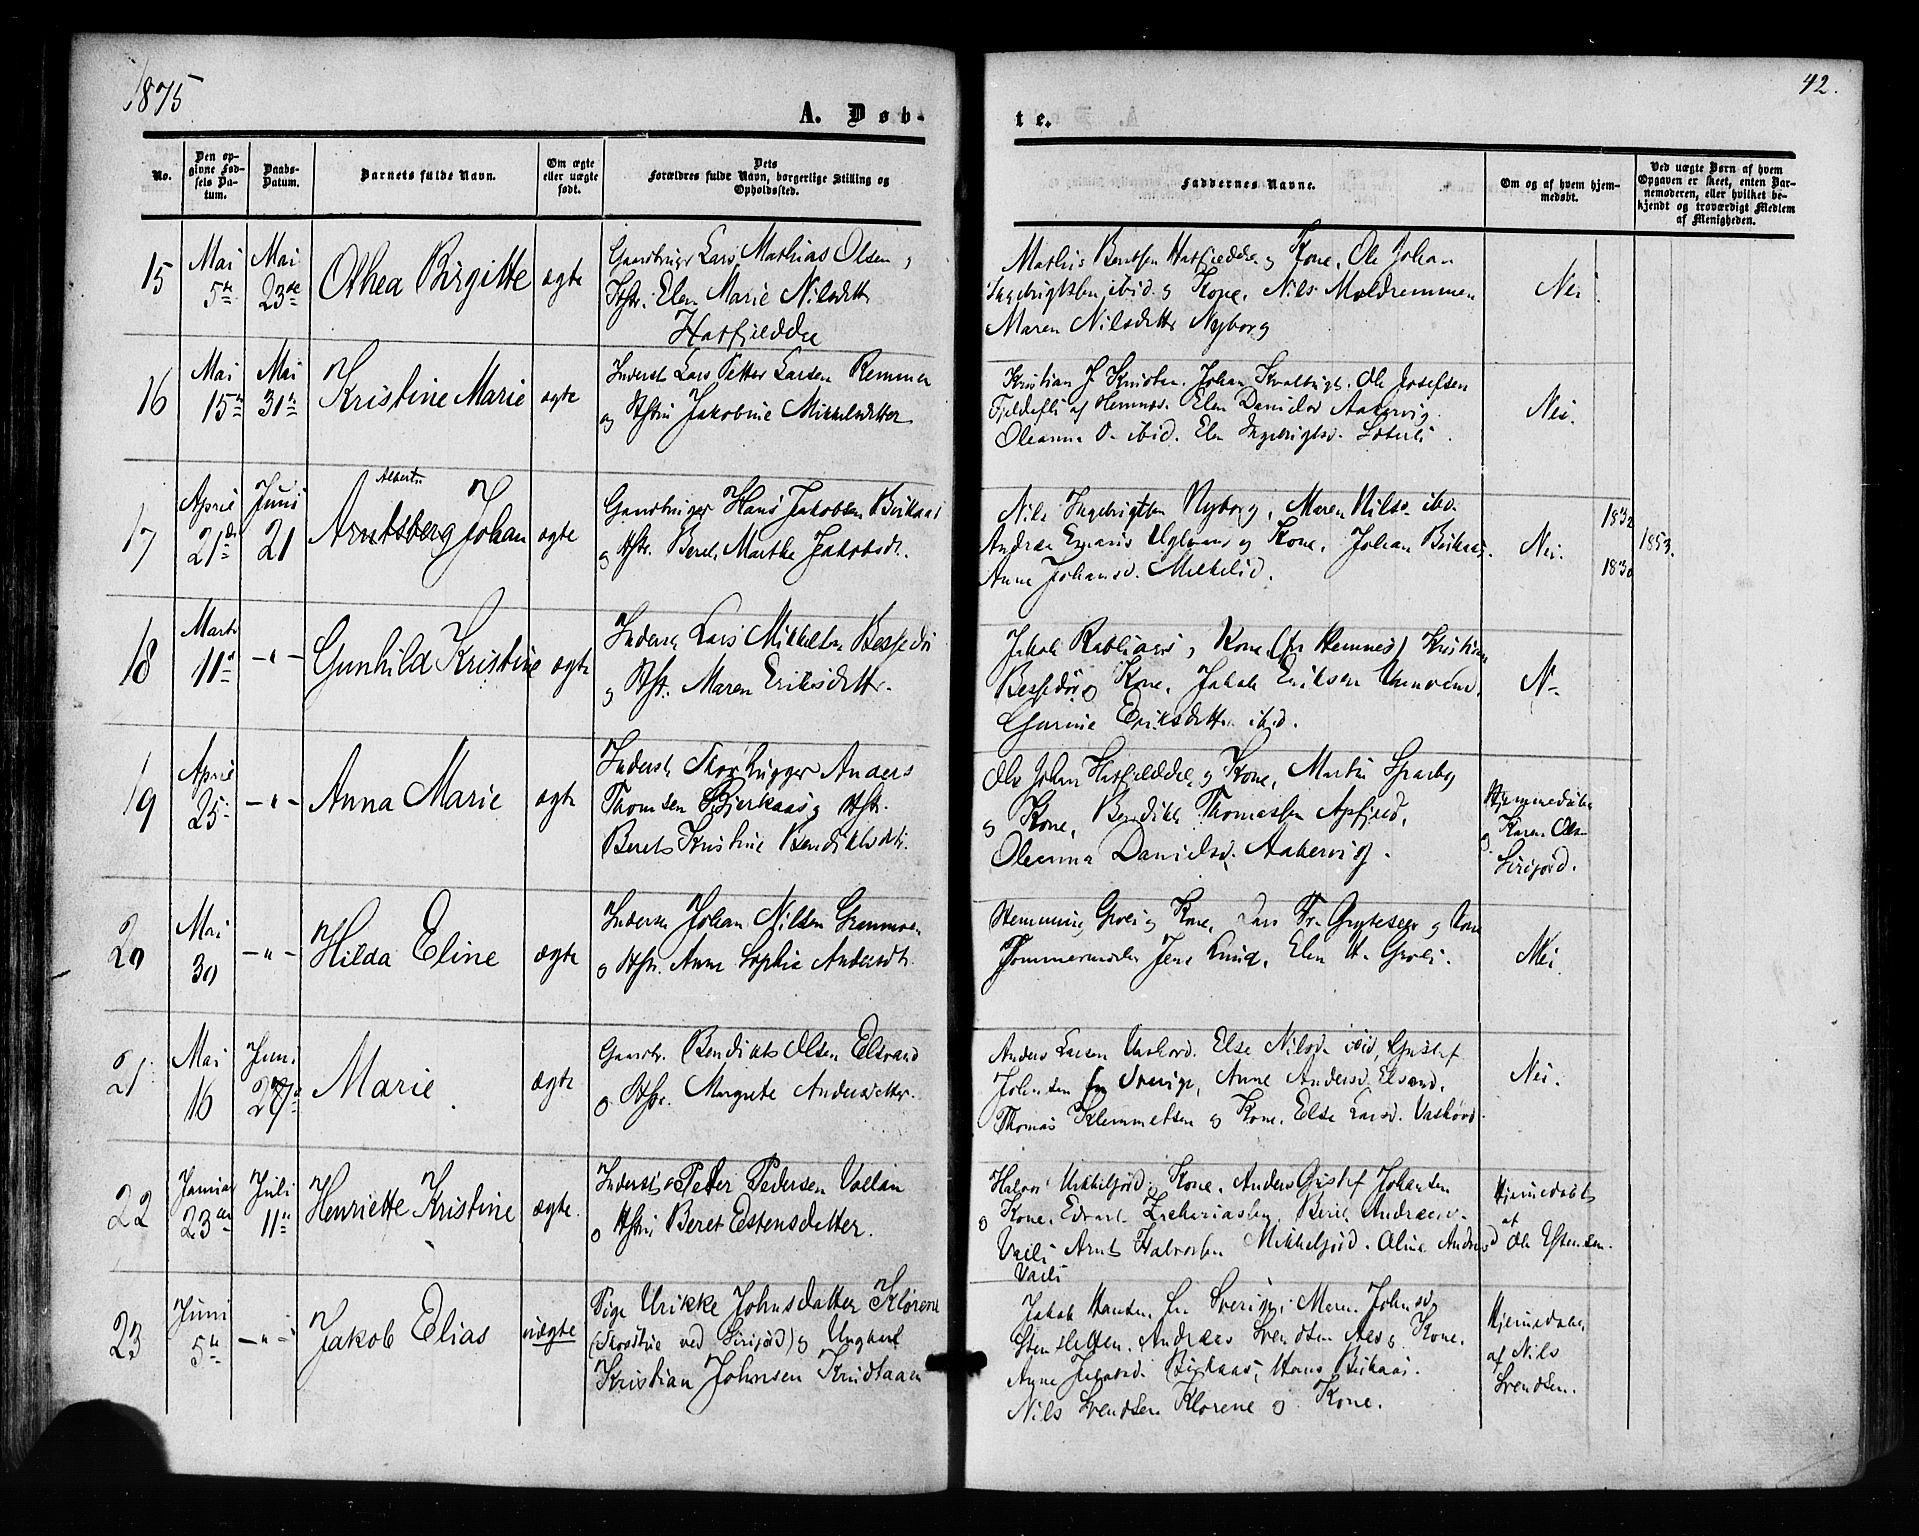 1875
42.
A. Døb-
te.
No.
Den op-
givne Fød-
sels Da-
tum.
Daabs-
Datum.
Barnets fulde Navn.
Om ægte
eller uægte
født.
Dets
Forældres fulde Navn, borgerlige Stilling og
Opholdssted.
Faddernes Navne.
Om og af hvem hjem-
medøbt.
Ved uægte Børn af hvem
Opgaven er skeet, enten Bar-
nemoderen, eller hvilket be-
kjendt og troværdigt Medlem
af Menigheden.
15
Mai
5te
Mai
23de
Othea Birgitte
ægte
Gaardbruger Lars Mathias Olsen og
Hstr. Elen Marie Nilsdatter
Hatfjelddal
Mathis Berntsen Hatfjelddal og Kone, Ole Johan
Ingebrigtsen ibid. og Kone, Nils Moldremmen
Maren Nilsdatter Nyborg
Nei
16
Mai
15te
Mai
31te
Kristine Marie
ægte
Inderst Lars Petter Larsen Remmen
og Hstru Jakobine Mikkelsdatter
Kristian J. Knudsen. Johan Ole Josefsen
af Hemnæs. Elen Danielsd. Aakervig
Oleanna D. ibid. Elen Ingebrigtsd.
Nei.
17
April
21de
Juni
21
Albert
Arntsberg Johan
ægte
Gaardbruger Hans Jakobsen Birkaas
og Hstr. Beret Marthe Jakobsdr.
Nils Ingebrigtsen Nyborg, Maren Nilsd. ibid.
Andreas og Kone, Johan Birkaas.
Anne Johansd. Mikkelid.
Nei.
1832
1830
1853.
18
Marts
11te
- " -
Gunhild Kristine
ægte
Inderst Lars Mikkelsen Bessedør
og Hstr. Maren Eriksdatter.
Jakob og Kone (fra Hemnes) Kristian
Bessedør og Kone, Jakob Eriksen
Gurine Eriksdatter ibid.
N-
19
April
25.
- " -
Anna Marie
ægte
Inderst Anders
Thomsen Bjerkaas og Hstr.
Beret Kristine Bendiktsdtr.
Ole Johan Hatfjelddal og Kone, Martin
og Kone, Bendikt Thomassen Apfjeld,
Oleanna Danielsd. Aakervig.
Hjemmedøbt
Karen Ols
Sirijord.
20
Mai
30
- " -
Hilda Eline
ægte
Inderst Johan Nilsen Grannmoen
og Hstr. Anne Sophie Andersdtr.
Hemming og Kone, Lars Fr. og Kone
Jens Lund, Elen H.
Nei.
21.
Mai
16
Juni
27de
Marie
ægte
Gaardbr. Bendikts Olsen Elsvand
og Hstr. Margrete Andersdatter.
Anders Larsen Else Nilsd. ibid, Gustaf
Johnsen fra Sverige, Anne Andersd. Elsvand.
Thomas Klemmetsen og Kone. Else Larsd.
Nei.
22
Januar
23de
Juli
11te
Henriette Kristine
ægte.
Inderst Peder Pedersen Vallan
og Hstru Beret Estensdatter.
Halvor Mikkeljord og Kone, Anders Gustaf Johansen
og Kone. Edvart Zachariassen, Beret Andreasd.
Arnt Halvorsen Mikkeljord. Oline Andreasd
Hjemmedøbt
af
Ole Estensen.
23
Juni
5te
- " -
Jakob Elias
uægte
Pige Urikke Johnsdatter Kløvene
ved Sirijord) og Ungkarl
Kristian Johnsen
Jakob Hansen fra Sverige, Maren Johnsd.
Andreas Svendsen og Kone.
Anne Jakobsd. Birkaas, Hans Birkaas.
Nils Svendsen Kløvene og Kone.
Hjemmedøbt
af Nils
Svendsen.